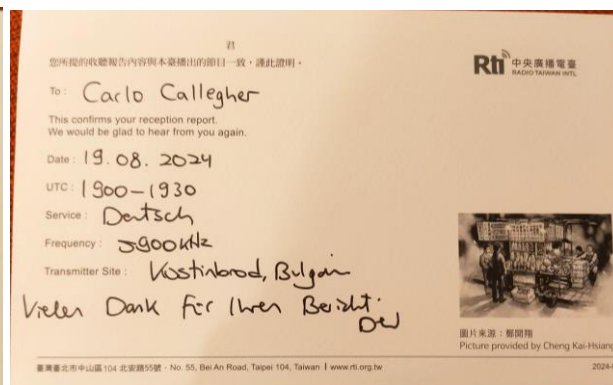 君
您所提的收聽報告內容與本臺播出的節目一致，謹此證明。
Rti 中央廣播電臺
RADIO TAIWAN INTL
To : Carlo Callegher
This confirms your reception report.
We would be glad to hear from you again.
Date : 19.08.2024
UTC : 1900-1930
Service : Deutsch
Frequency : 5900 kHz
Transmitter Site : Kostinbrod, Bulgarien
Vielen Dank für Ihren Bericht.
圖片來源：鄭開翔
Picture provided by Cheng Kai-Hsiang
臺灣臺北市中山區104 北安路55號 · No. 55, Bei An Road, Taipei 104, Taiwan | www.rti.org.tw
2024